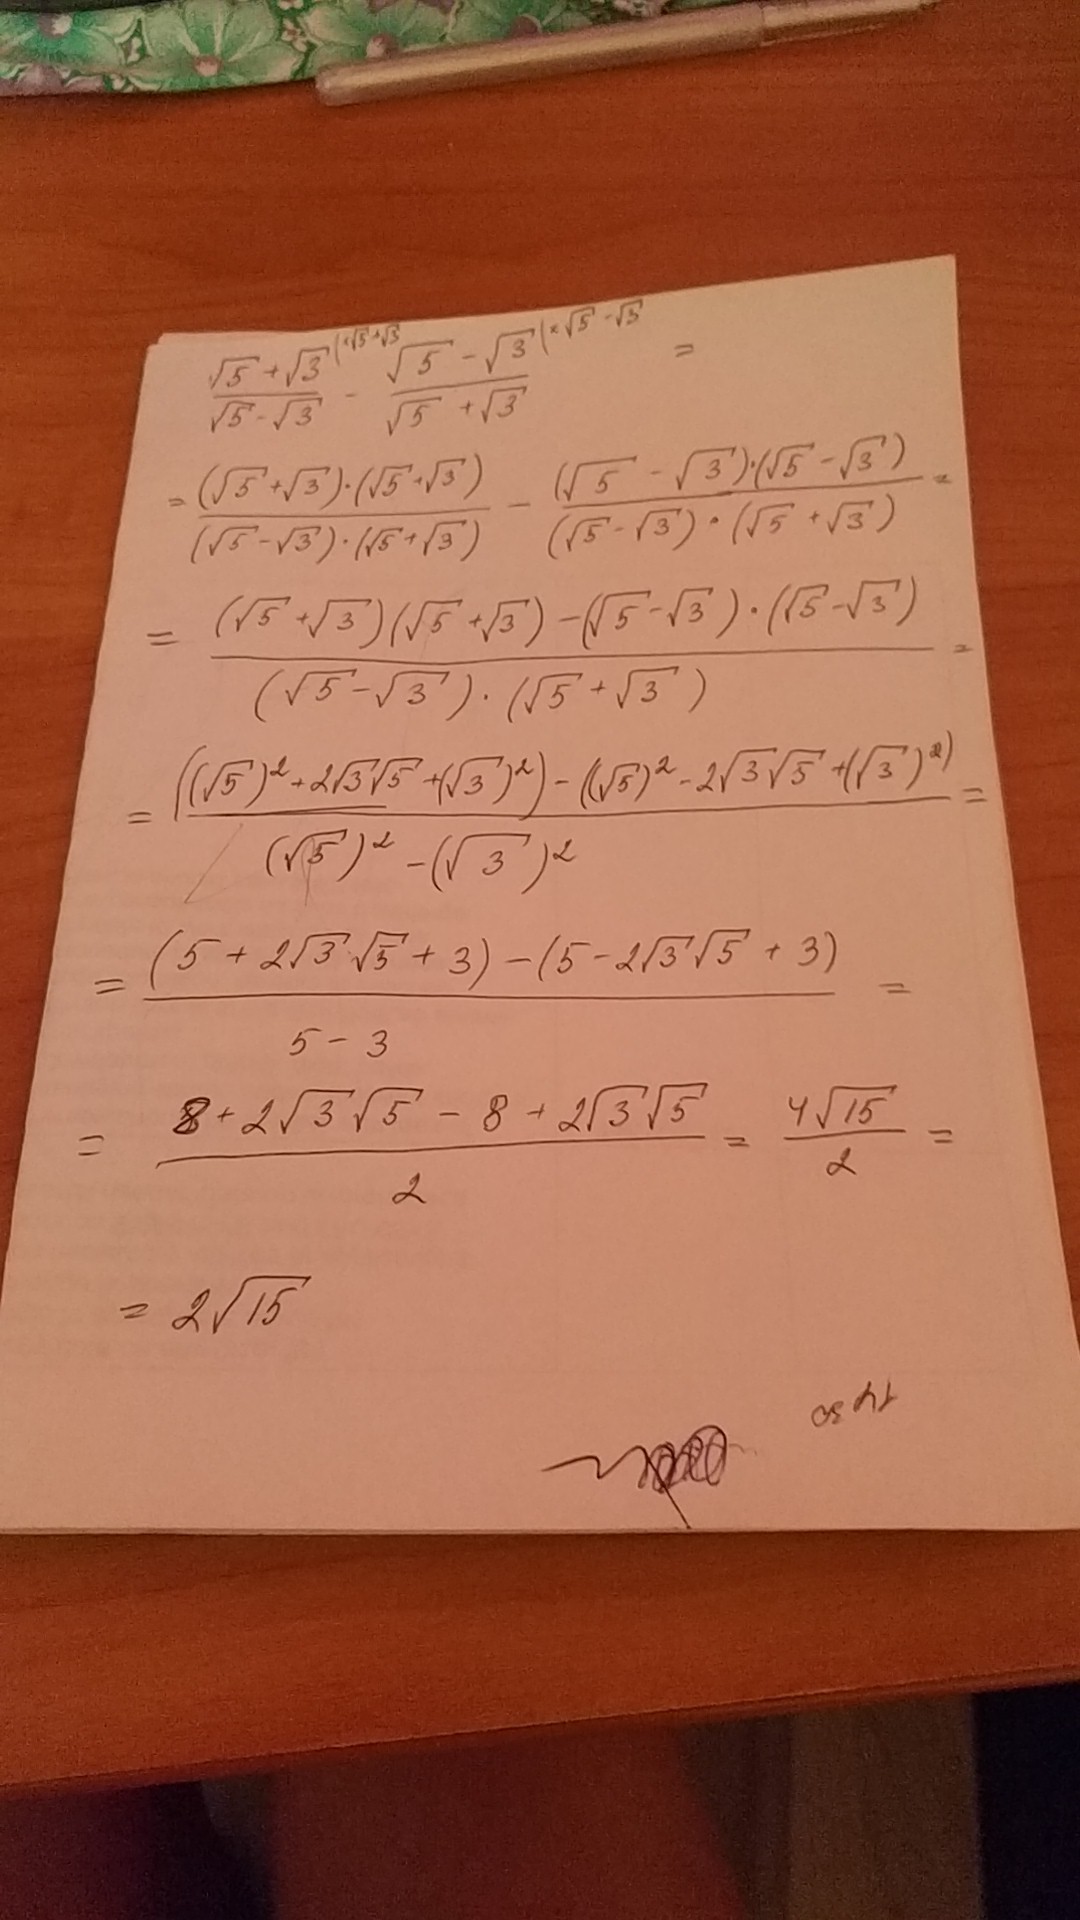 (√5 + √3)/(√5 - √3) (×√5 + √3 - (√5 - √3)/(√5 + √3) (×√5 - √3 =
= ((√5 + √3)·(√5 + √3))/((√5 - √3)·(√5 + √3)) - ((√5 - √3)·(√5 - √3))/((√5 - √3)·(√5 + √3)) =
= ((√5 + √3)(√5 + √3) - (√5 - √3)·(√5 - √3))/((√5 - √3)·(√5 + √3)) =
= (((√5)² + 2√3√5 + (√3)²) - ((√5)² - 2√3√5 + (√3)²))/((√5)² - (√3)²) =
= ((5 + 2√3√5 + 3) - (5 - 2√3√5 + 3))/(5 - 3) =
= (8 + 2√3√5 - 8 + 2√3√5)/2 = 4√15/2 =
= 2√15